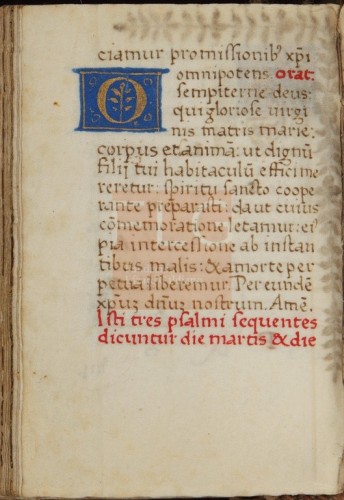 ciamur promissionib' xp̄i
Omnipotens orat:
sempiterne deus:
qui gloriose virgi
nis matris marie:
corpus et animā: ut dignū
filij tui habitaculū effici me
reretur: spiritu sancto coope
rante preparasti: da ut cuius
cōmemoratione letamur: ei'
pia intercessione ab instan
tibus malis: & a morte per
petua liberemur. Per eundē
xp̄um dn̄um nostrum. Amē.
Isti tres psalmi sequentes
dicuntur die martis & die